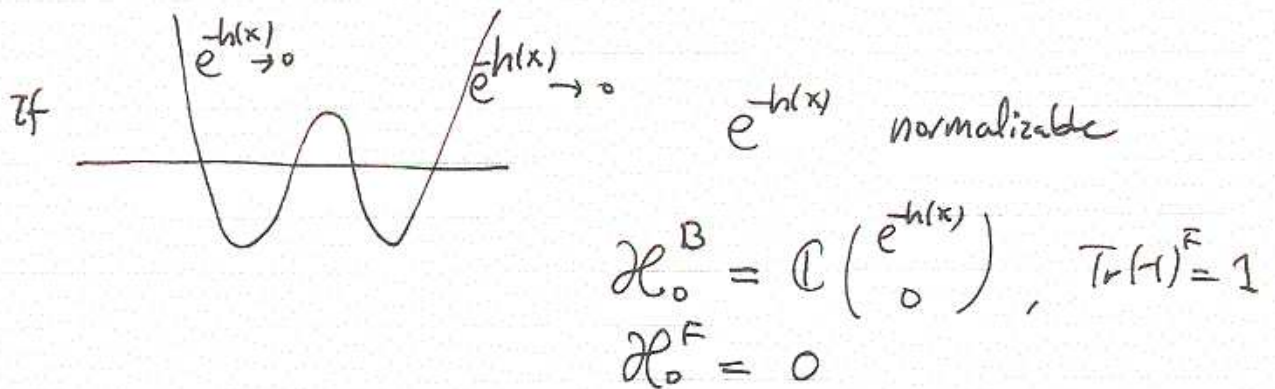 e^{-h(x)} → 0
If
e^{-h(x)} → 0
e^{-h(x)} normalizable
ℋ₀^B = ℂ ( e^{-h(x)} 0 ), Tr(-1)^F = 1
ℋ₀^F = 0